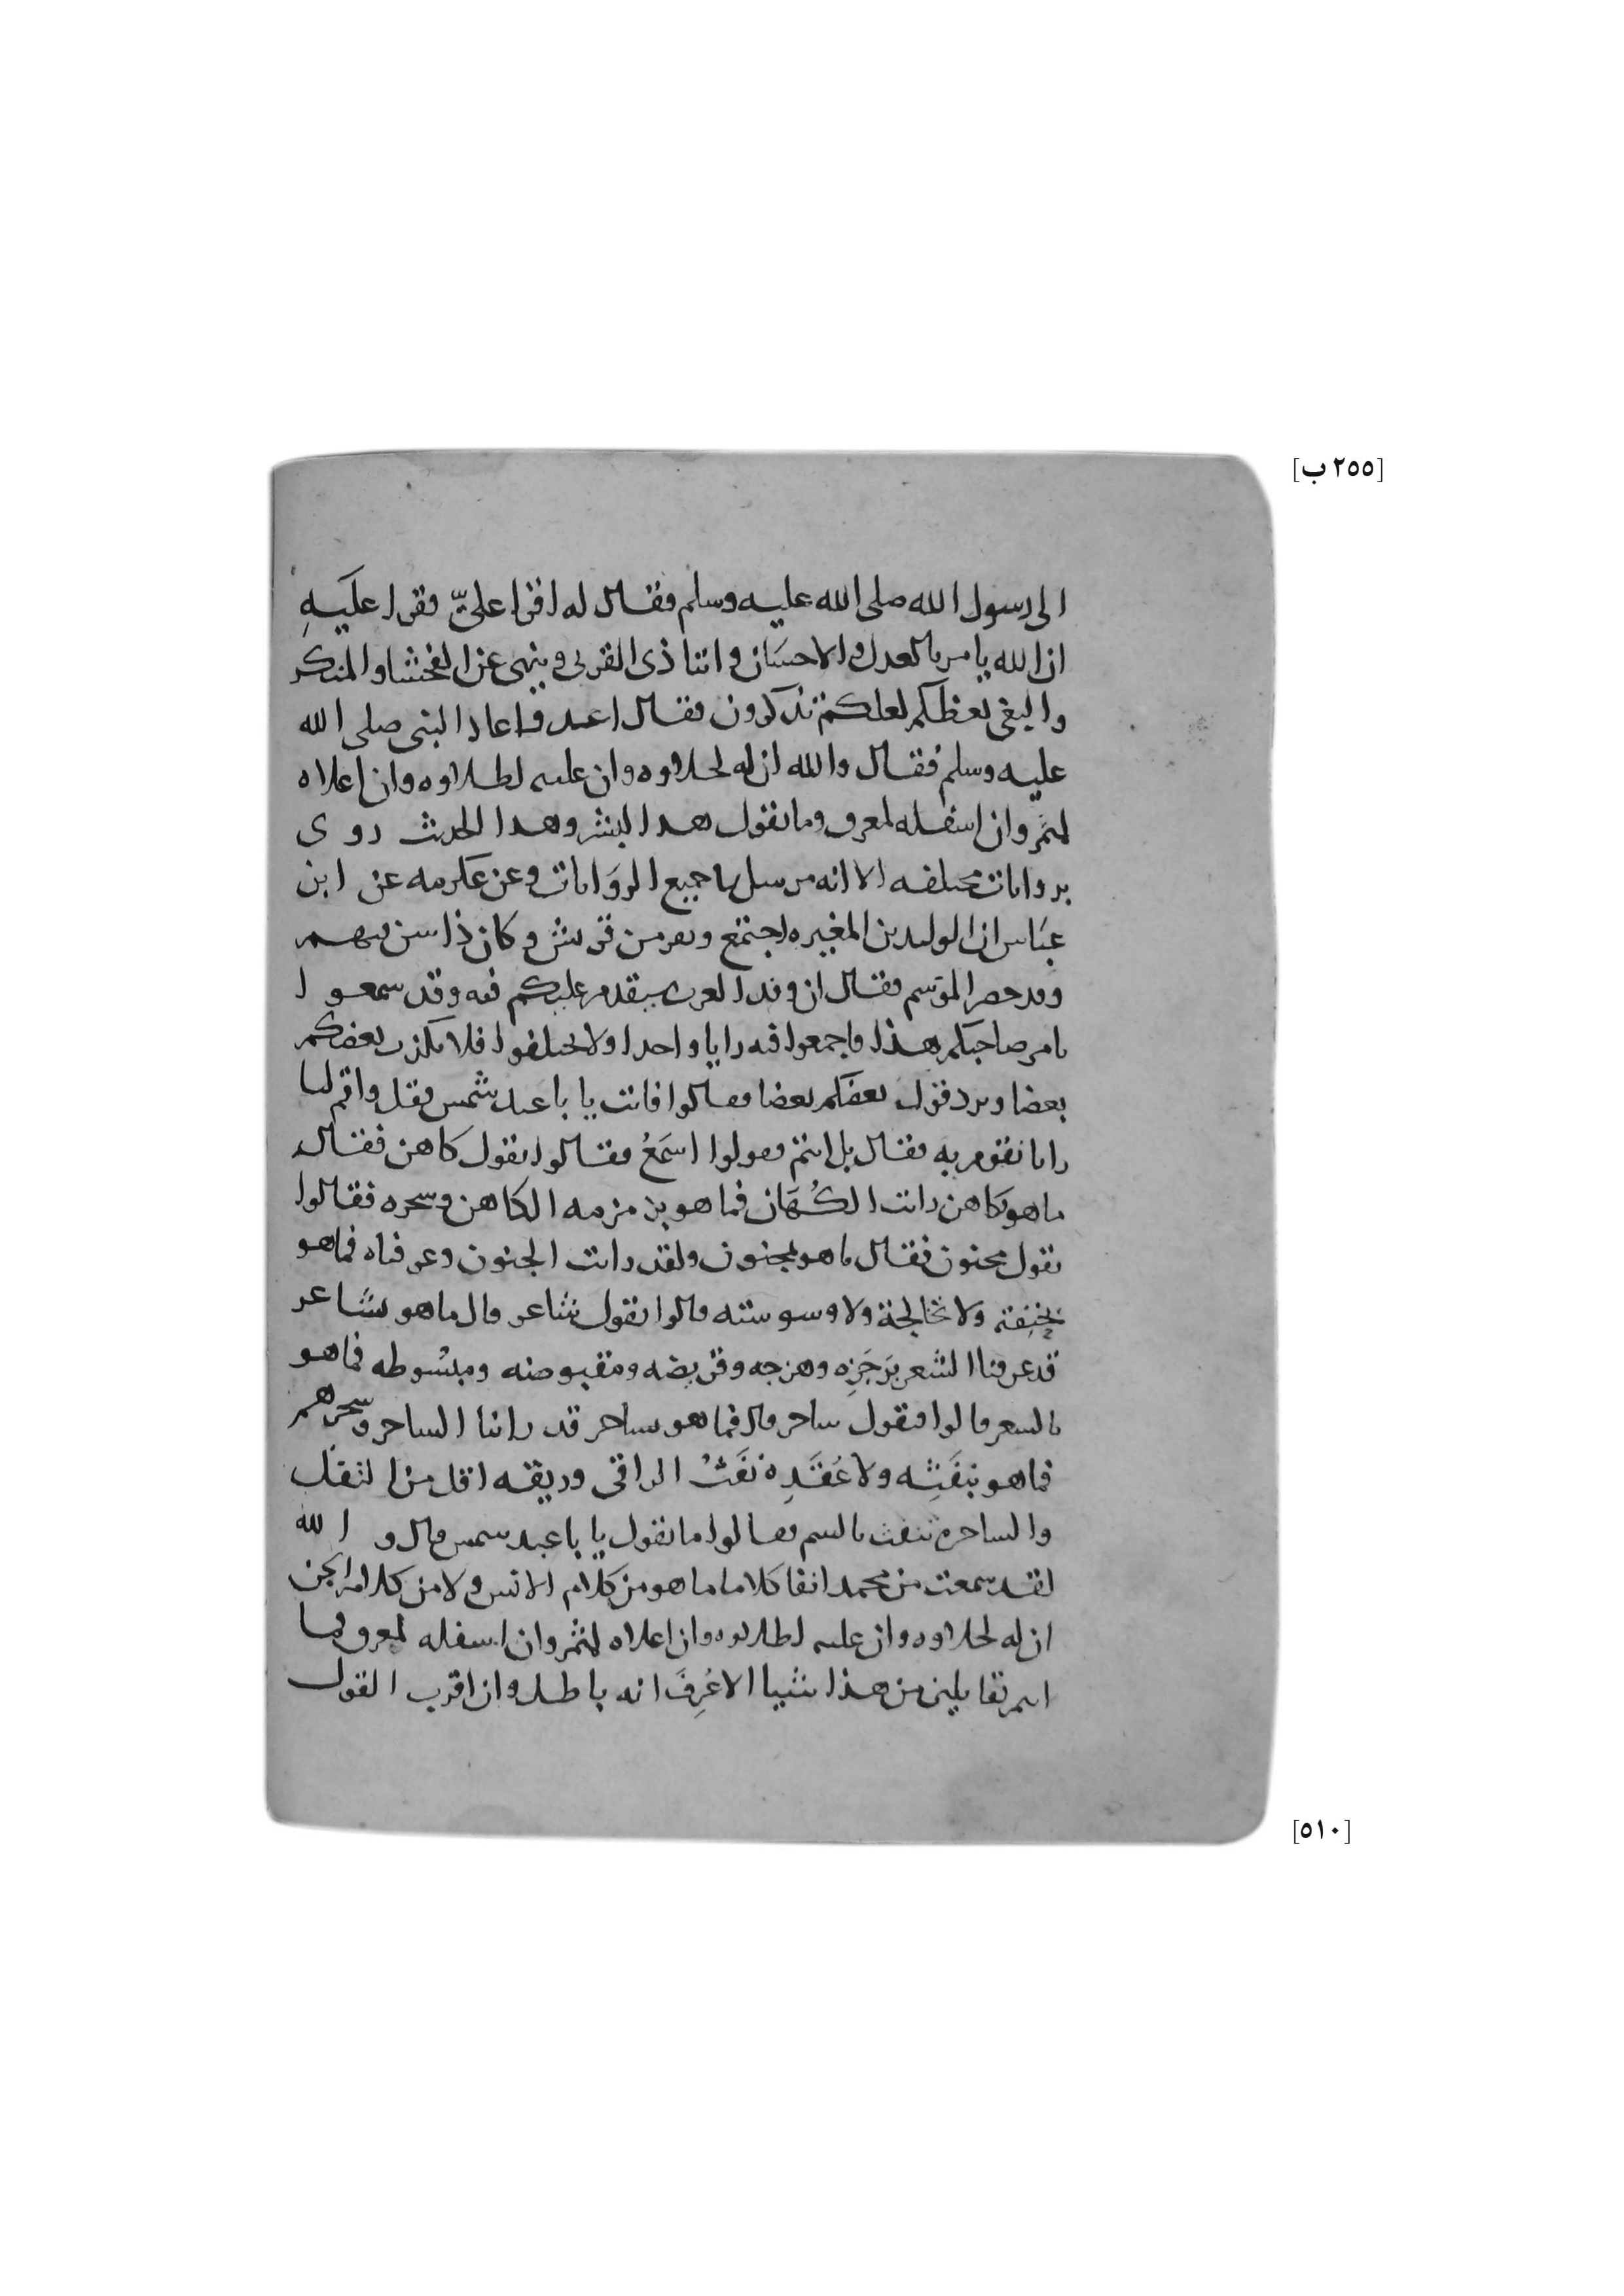 [٢٥٥ ب]
الى رسول الله صلى الله عليه وسلم فقال له اقرا علىّ فقرا عليهِ
ان الله يامر بالعدل والاحسَان وايتا ذى القربى وينهى عن الفحشا والمنكر
والبغى يعظكم لعلكم تذكرون فقال اعد فاعاد النبى صلى الله
عليه وسلم فقال والله ان له لحلاوه وان عليه لطلاوه وان اعلاه
لمثمر وان اسفله لمعرق وما يقول هذا البشر وهذا الحديث روى
بروايات مختلفه الا انه مرسل فى جميع الروَايات وعن عكرمه عن ابن
عبَاس ان الوليد بن المغيره اجتمع ونفر من قريش وكان ذا سن فيهم
وقد حضر الموَسم فقال ان وفد العرب سيقدم عليكم فيه وقد سمعوا
بامر صاحبكم هذا فاجمعوا فيه رايا واحدا ولا تختلفوا فلا يكذب بعضكم
بعضا ويرد قول بعضكم بعضا فقالوا فانت يا با عبد شمس فقل واقم لنا
رايا نقوم به فقال بل انتم فقولوا اسمَعُ فقالوا نقول كاهن فقال
ما هو بكاهن رايت الكُهَان فما هو بزمزمه الكاهن وسحره فقالوا
نقول مجنون فقال ما هو بمجنون ولقد رايت الجنون وعرفناه فما هو
بخنقِه ولا تخالجه ولا وسوسته قالوا نقول شاعر قال ما هو بشاعر
قد عرفنا الشعر برَجَزِه وهزجه وقريضه ومقبوضه ومبسُوطه فما هو
بالشعر قالوا فنقول ساحر قال فما هو ساحر قد راينا الساحر وسحرهم
فما هو بنفَثِه ولا عُقَدِه نَفَثُ الراقى وريقه اقل من التفل
والساحره تنفث بالسم فقالوا ما نقول يا با عبد شمس قال والله
لقد سمعت من محمد انفا كلاما ما هو من كلام الانس ولا من كلام الجن
ان له لحلاوه وان عليه لطلاوه وان اعلاه لمثمر وان اسفله لمعرق فما
انتم بقايلين من هذا شيا الا عُرِفَ انه باطل وان اقرب القول
[٥١٠]